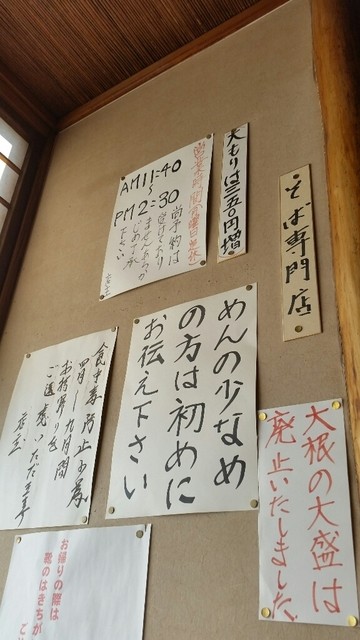 そば専門店
大もりは三五〇円増
営業時間
AM11:40
〜
PM2:30
尚予約は
受けており
ませんあらか
じめ了承
下さい
店主
めんの少なめ
の方は初めに
お伝え下さい
大根の大盛は
廃止いたしました。
食中毒防止の為
四月〜九月間
お持帰りを
ご遠慮いただきます
店主
お帰りの際は
靴のはきちが